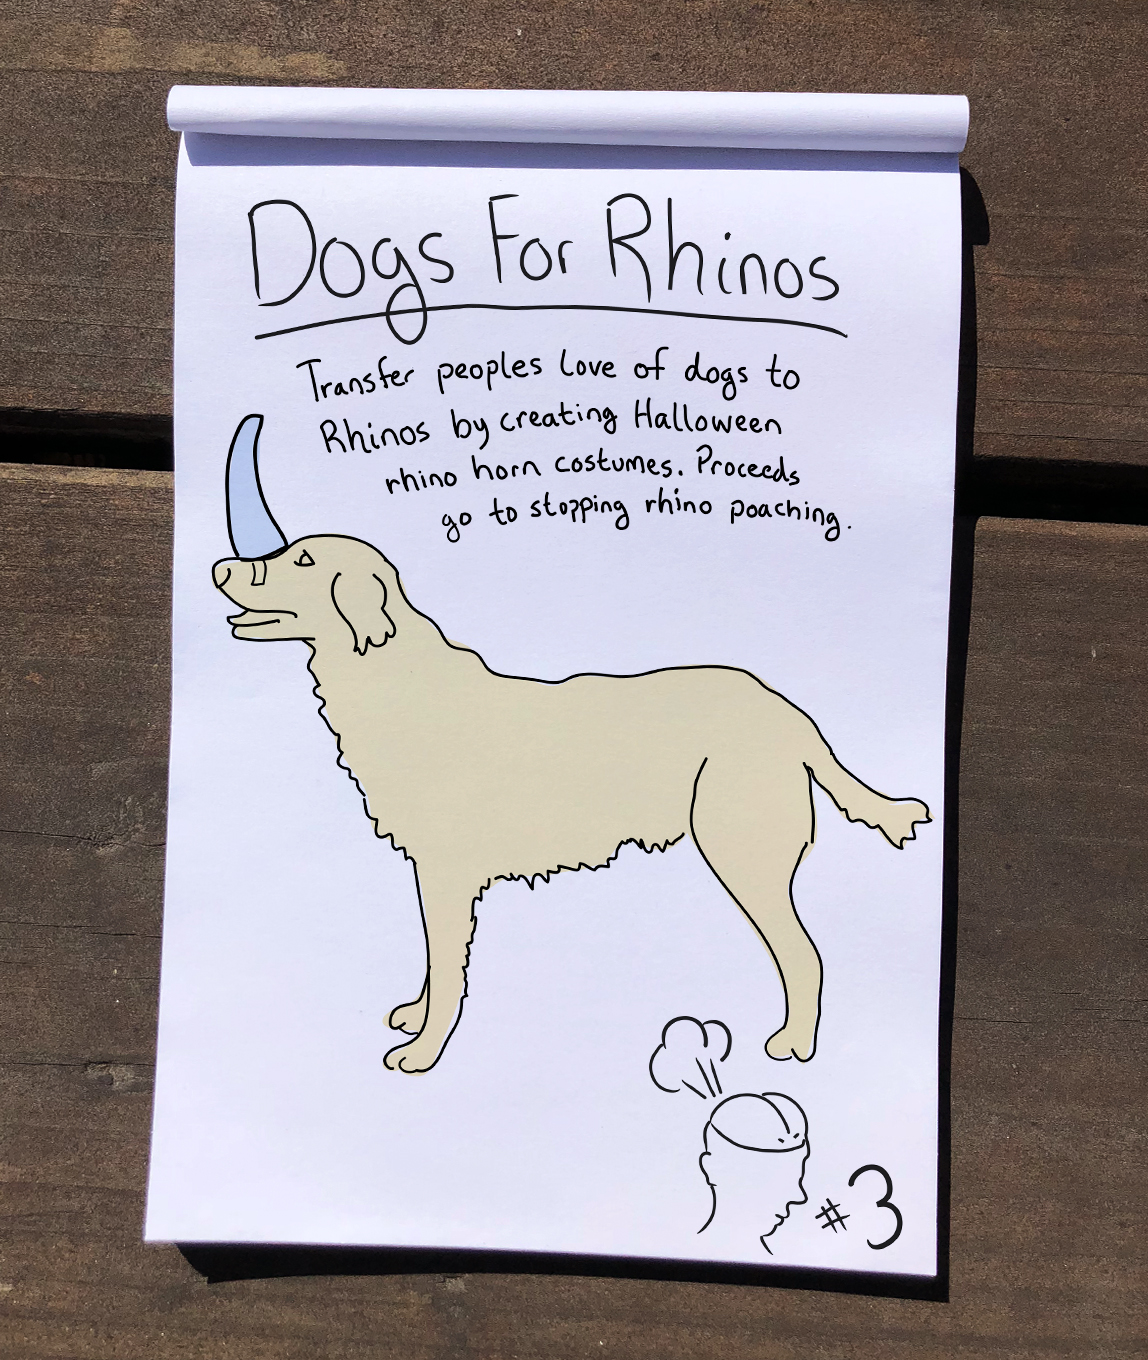 Dogs For Rhinos
Transfer peoples love of dogs to
Rhinos by creating Halloween
rhino horn costumes. Proceeds
go to stopping rhino poaching.
#3